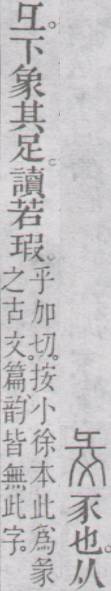 豕也。从
彑。下象其足。讀若瑕。
乎加切。按小徐本此爲彖
之古文。篇、韵皆無此字。